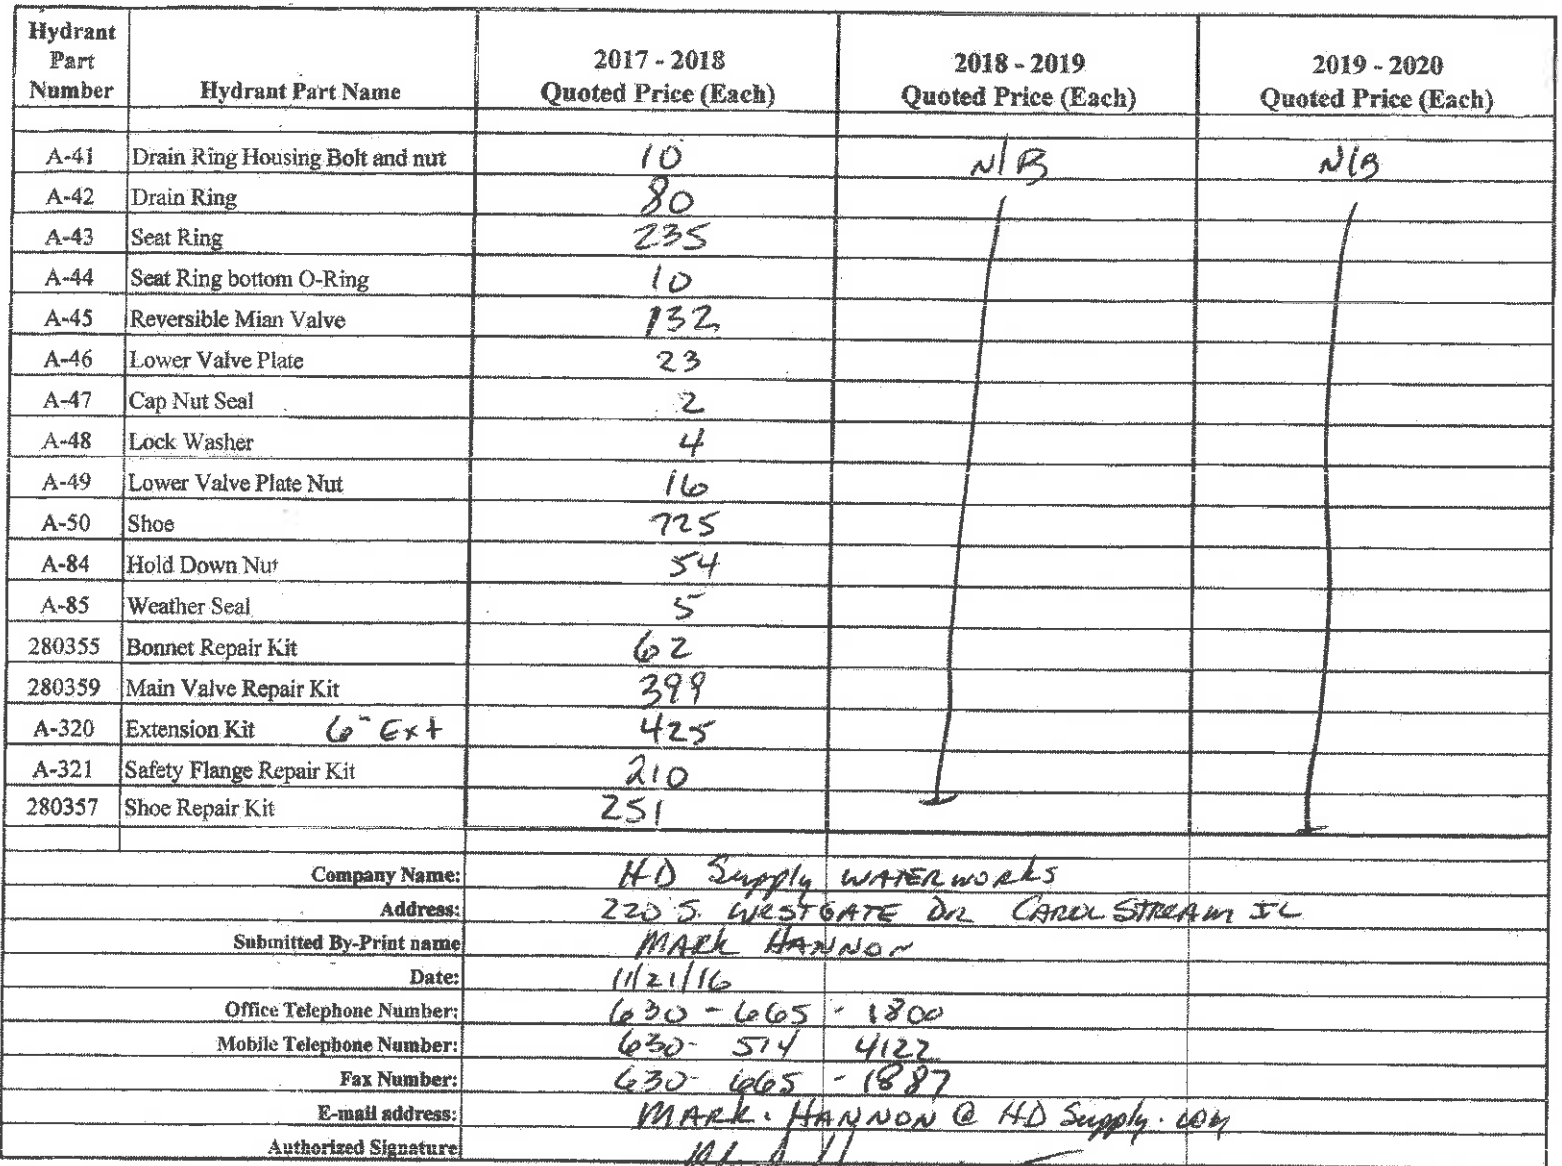 Hydrant Part Number Hydrant Part Name 2017 - 2018 Quoted Price (Each) 2018 - 2019 Quoted Price (Each) 2019 - 2020 Quoted Price (Each)
A-41 Drain Ring Housing Bolt and nut 10 N/B N/B
A-42 Drain Ring 80
A-43 Seat Ring 235
A-44 Seat Ring bottom O-Ring 10
A-45 Reversible Mian Valve 132
A-46 Lower Valve Plate 23
A-47 Cap Nut Seal 2
A-48 Lock Washer 4
A-49 Lower Valve Plate Nut 16
A-50 Shoe 725
A-84 Hold Down Nut 54
A-85 Weather Seal 5
280355 Bonnet Repair Kit 62
280359 Main Valve Repair Kit 399
A-320 Extension Kit 6" Ext 425
A-321 Safety Flange Repair Kit 210
280357 Shoe Repair Kit 251
Company Name: HD Supply WATERWORKS
Address: 220 S. WESTGATE DR CAROL STREAM IL
Submitted By-Print name MARK HANNON
Date: 11/21/16
Office Telephone Number: 630-665-1800
Mobile Telephone Number: 630-514 4122
Fax Number: 630-665-1887
E-mail address: MARK.HANNON@HDSupply.com
Authorized Signature